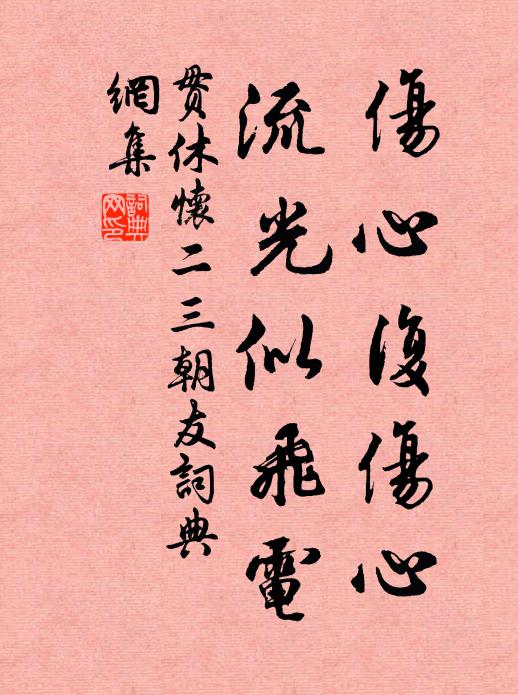 傷心復傷心
流光似飛電
貫休懷二三朝友詞典
網集
詞典網印